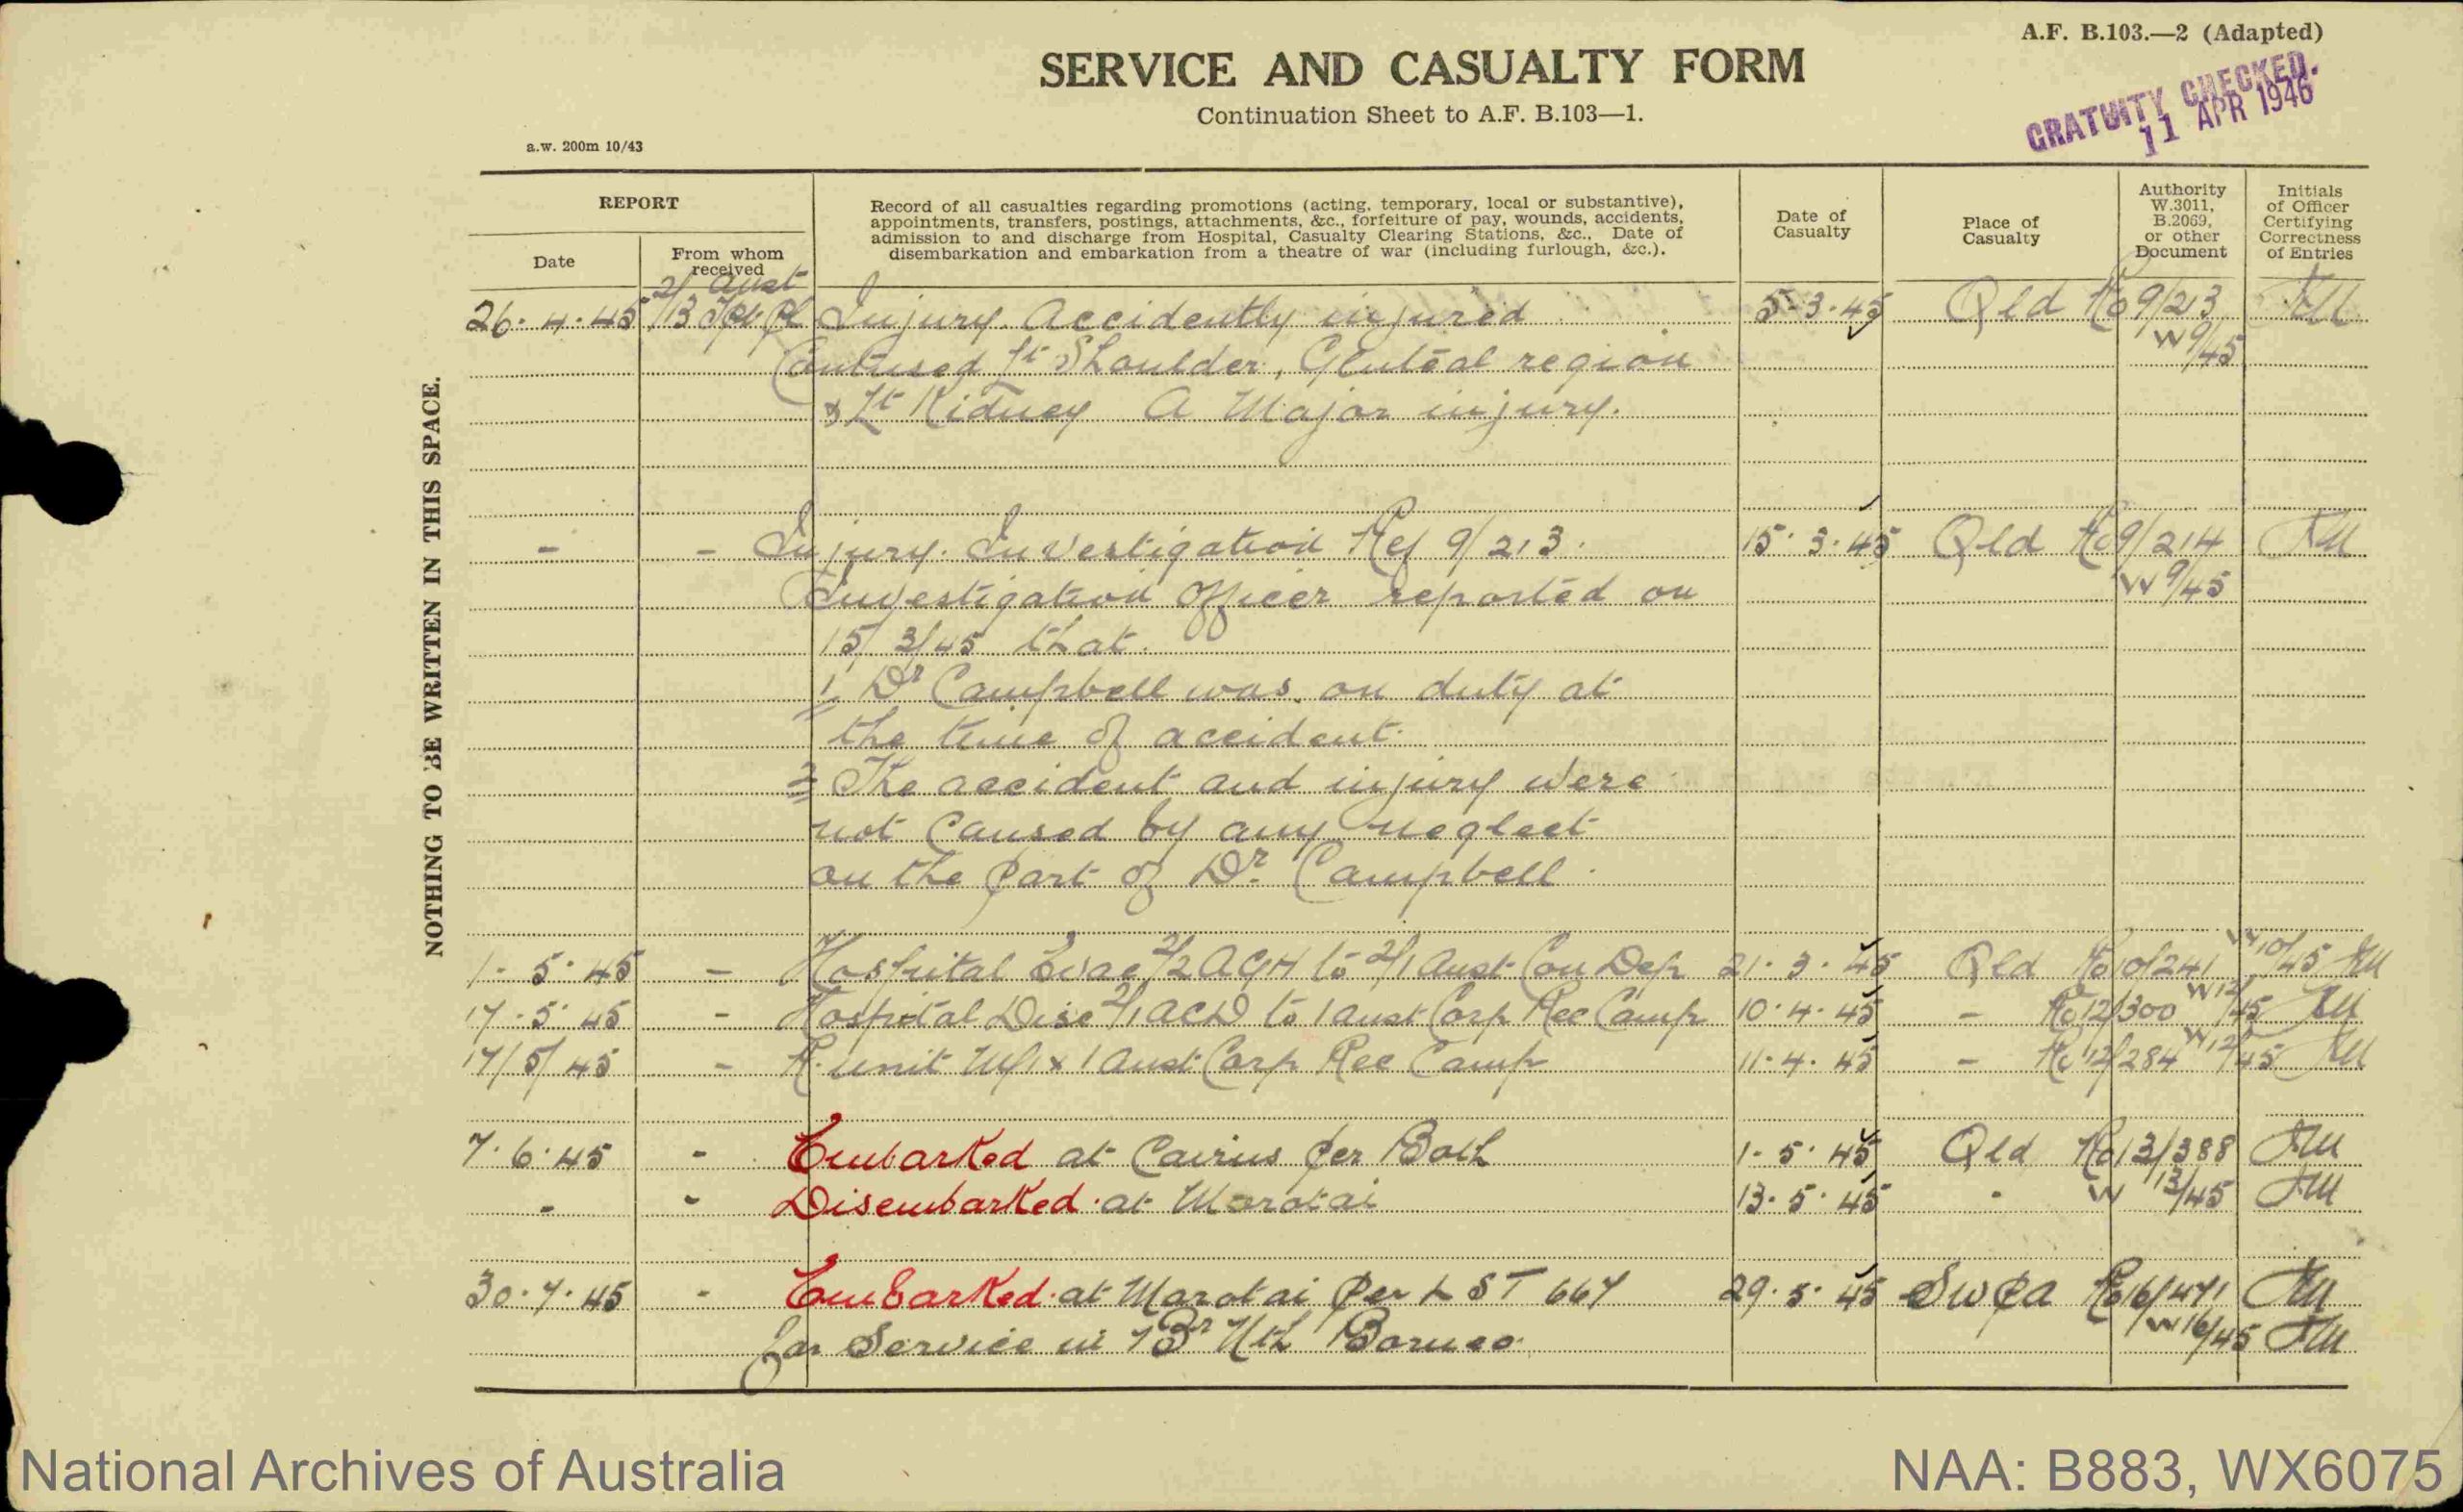 A.F. B.103.—2 (Adapted)
SERVICE AND CASUALTY FORM
Continuation Sheet to A.F. B.103—1.
GRATUITY CHECKED.
11 APR 1946
a.w. 200m 10/43
NOTHING TO BE WRITTEN IN THIS SPACE.
REPORT
Date
From whom received
Record of all casualties regarding promotions (acting, temporary, local or substantive),
appointments, transfers, postings, attachments, &c., forfeiture of pay, wounds, accidents,
admission to and discharge from Hospital, Casualty Clearing Stations, &c., Date of
disembarkation and embarkation from a theatre of war (including furlough, &c.).
Date of Casualty
Place of Casualty
Authority W.3011, B.2069, or other Document
Initials of Officer Certifying Correctness of Entries
26.4.45 2/13 Aust Injury. Accidently injured 5.3.45 Qld Ro 9/213
Contused Lt Shoulder, Gluteal region W 9/45
& Lt Kidney A Major injury.
- - Injury. Investigation Ref 9/213. 15.3.45 Qld Ro 9/214
Investigation Officer reported on W 9/45
15/3/45 that.
1, Dr Campbell was on duty at
the time of accident.
2 The accident and injury were
not caused by any neglect
on the part of Dr. Campbell.
1.5.45 - Hospital Evac 2/2 AGH to 2/1 Aust Con Dep 21.3.45 Qld Ro 10/241 W 10/45
17.5.45 - Hospital Disc 2/1 ACD to 1 Aust Corp Rec Camp 10.4.45 - Ro 12/300 W 12/45
17/5/45 - R. unit M/I x 1 Aust Corp Rec Camp 11.4.45 - Ro 12/284 W 12/45
7.6.45 - Embarked at Cairns per Both 1.5.45 Qld Ro 13/388
- - Disembarked at Morotai 13.5.45 W 13/45
30.7.45 - Embarked at Morotai per L ST 667 29.5.45 SWPA Ro 16/471
for Service in Br Nth Borneo W 16/45
National Archives of Australia
NAA: B883, WX6075